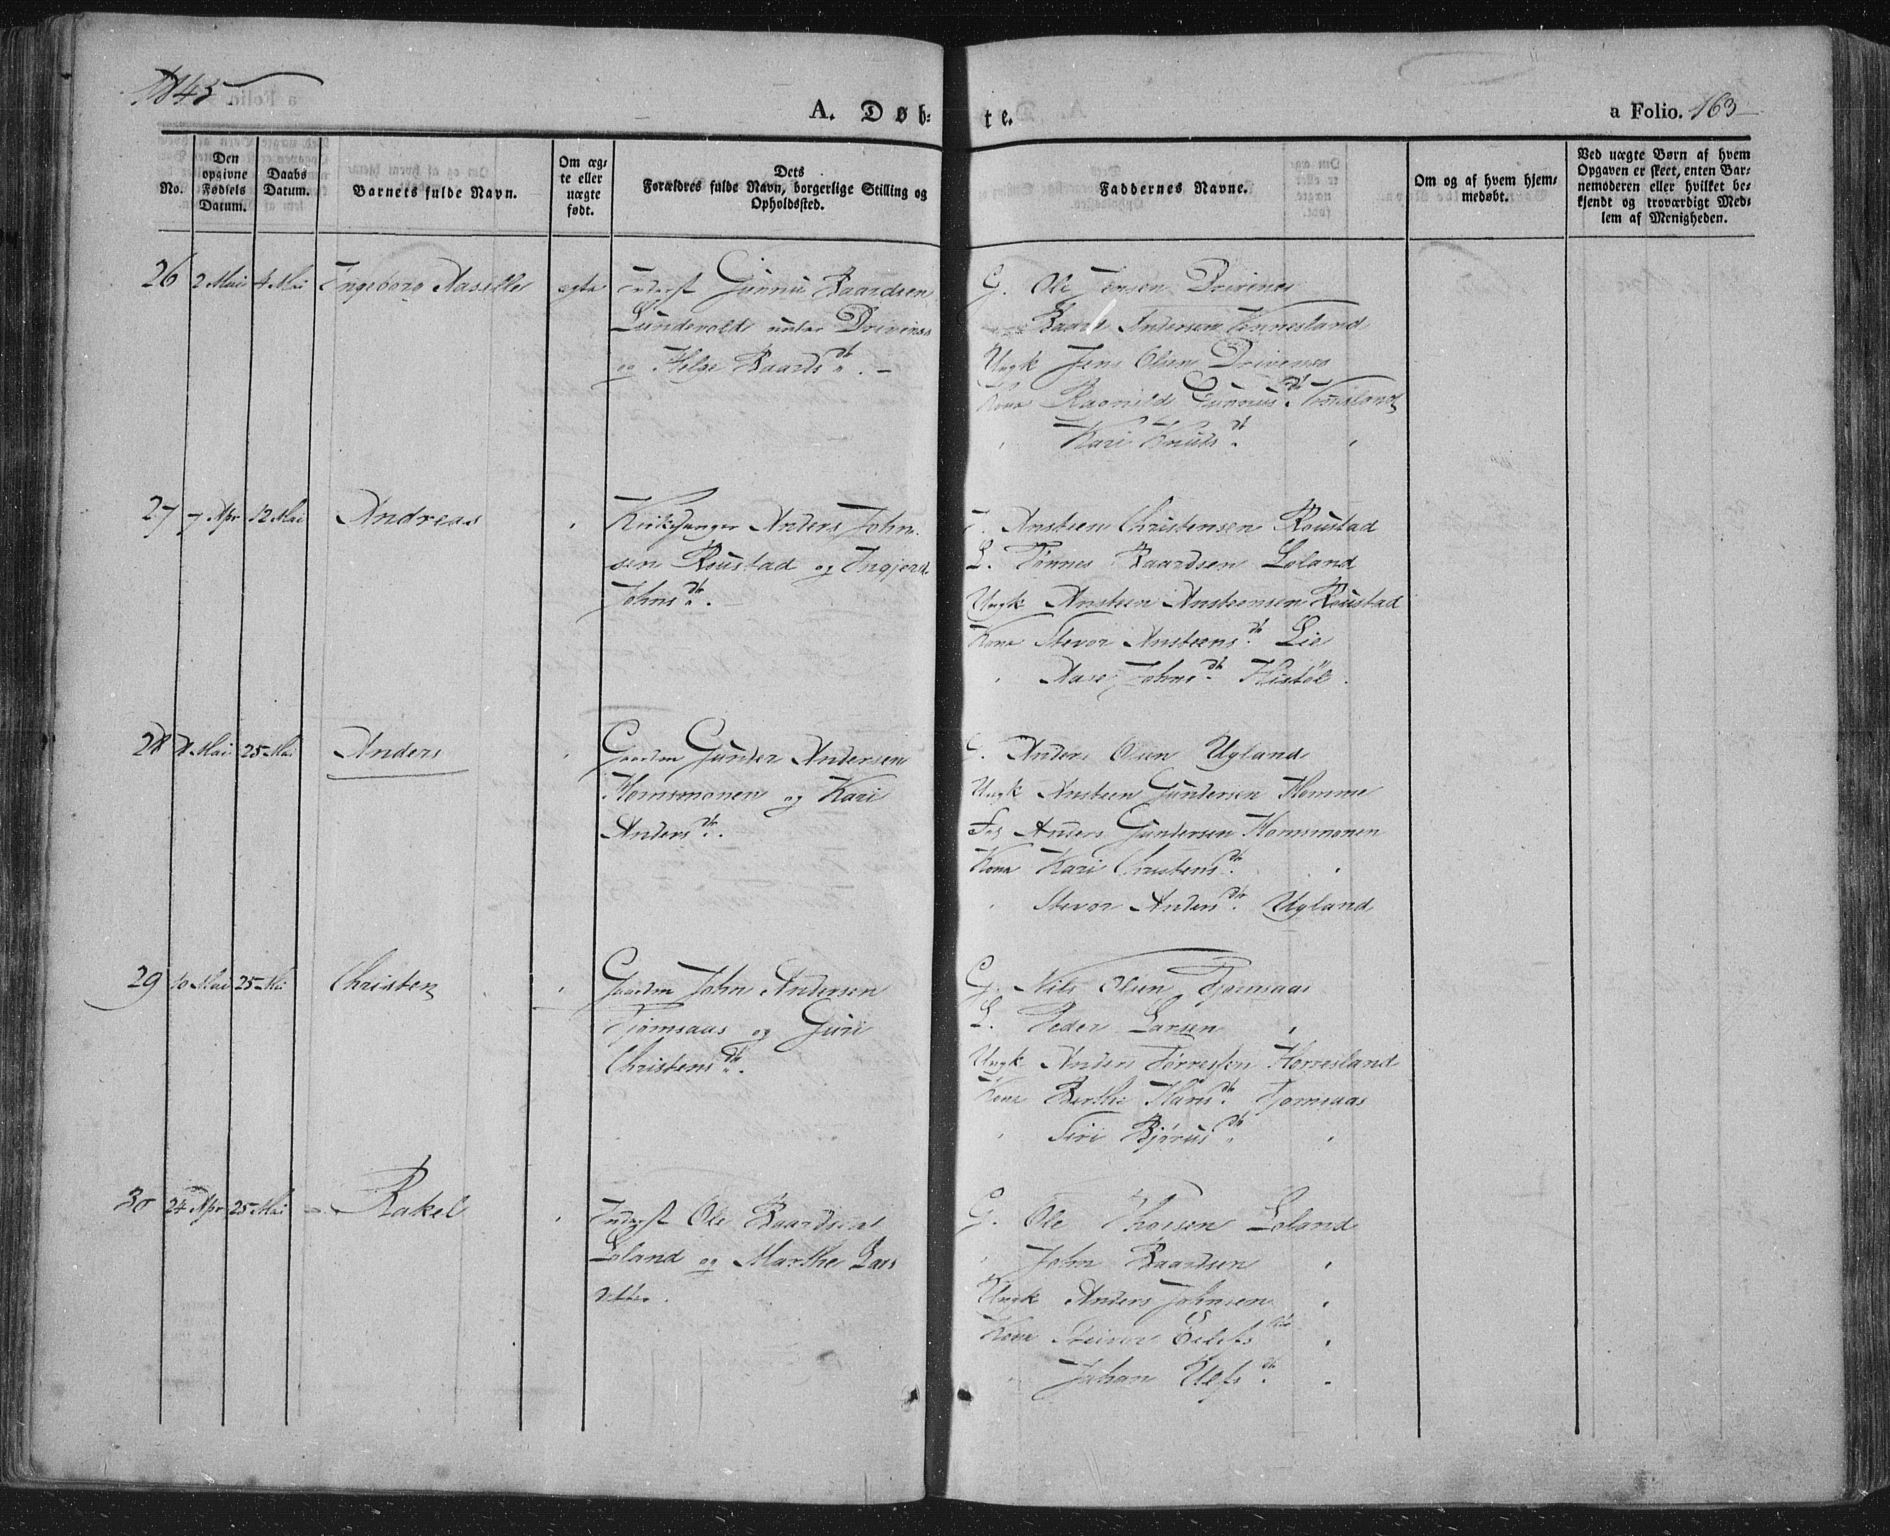 1845
A. Døb-
te.
a Folio. 163
No.
Den opgivne Fødsels Datum.
Daabs Datum.
Barnets fulde Navn.
Om ægte eller uægte født.
Dets Forældres fulde Navn, borgerlige Stilling og Opholdssted.
Faddernes Navne.
Om og af hvem hjemmedøbt.
Ved uægte Børn af hvem Opgaven er skeet, enten Barnemoderen eller hvilket bekjendt og troværdigt Medlem af Menigheden.
26 2 Mai 4 Mai Ingeborg Aasille ægte
Inderst Gunnu Baardsen
Lundevold under Drivenes
og Helge Baardsdtr. —
G. Ole Jensen Drivenes
Baard Andersen
Ungk Jens Olsen Drivenes
Kone Ragnild Gunnusdtr.
" Kari Knudsdtr. "
27 7 Apr 12 Mai Andreas "
Kirkesanger Anders John-
sen Roustad og Ingjerd
Johnsdtr. —
Ansteen Christensen Roustad
L. Tønnes Baardsen Løland
Ungk Ansteen Ansteensen Roustad
Kone Stevor Ansteensdtr. Lie
" Aase Johnsdtr.
28 8 Mai 25 Mai Anders "
Gaardm Gunder Andersen
Homsmonen og Kari
Andersdtr.
G. Anders Olsen Ugland
Ungk Ansteen Gundersen Homme
Anders Gundersen Homsmonen
Kone Kari Christensdtr. "
" Stevor Andersdtr. Ugland
29 10 Mai 25 Mai Christen "
Gaardm John Andersen
Tjomsaas og Guri
Christensdtr.
G. Nils Olsen Tjomsaas
L. Peder Larsen "
Ungk Anders Tørresen
Kone Berthe Hansdtr. Tjomsaas
" Siri Bjørnsdtr. "
30 24 Apr 25 Mai Rakel "
Inderst Ole Baardsen
Løland og Marthe Lars
datter.
G. Ole Thorsen Løland
" John Baardsen "
Ungk Anders Johnsen "
Kone Eilefsdtr. "
" Johan "